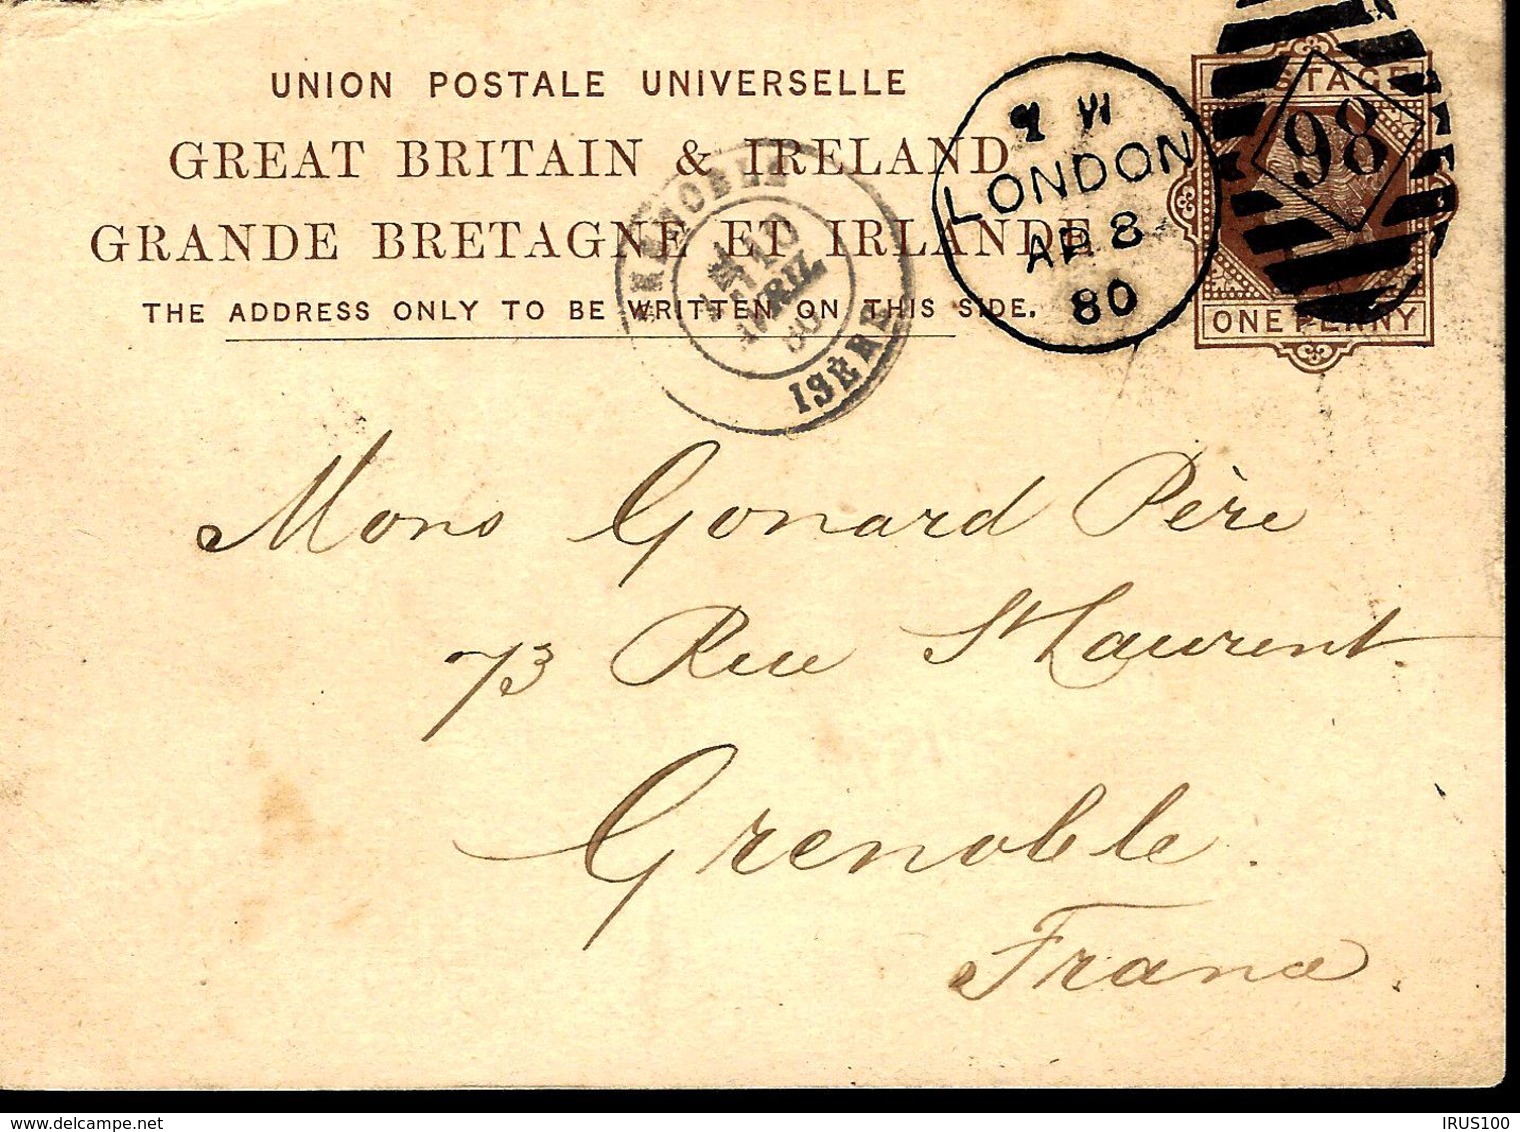 UNION POSTALE UNIVERSELLE
GREAT BRITAIN & IRELAND
GRANDE BRETAGNE ET IRLANDE
THE ADDRESS ONLY TO BE WRITTEN ON THIS SIDE.
LONDON
AP 8
80
98
STAGE
ONE PENNY
GRENOBLE
10
AVRIL
80
ISÈRE
Mons Gonard Père
73 Rue St Laurent.
Grenoble.
France.
IRUS100